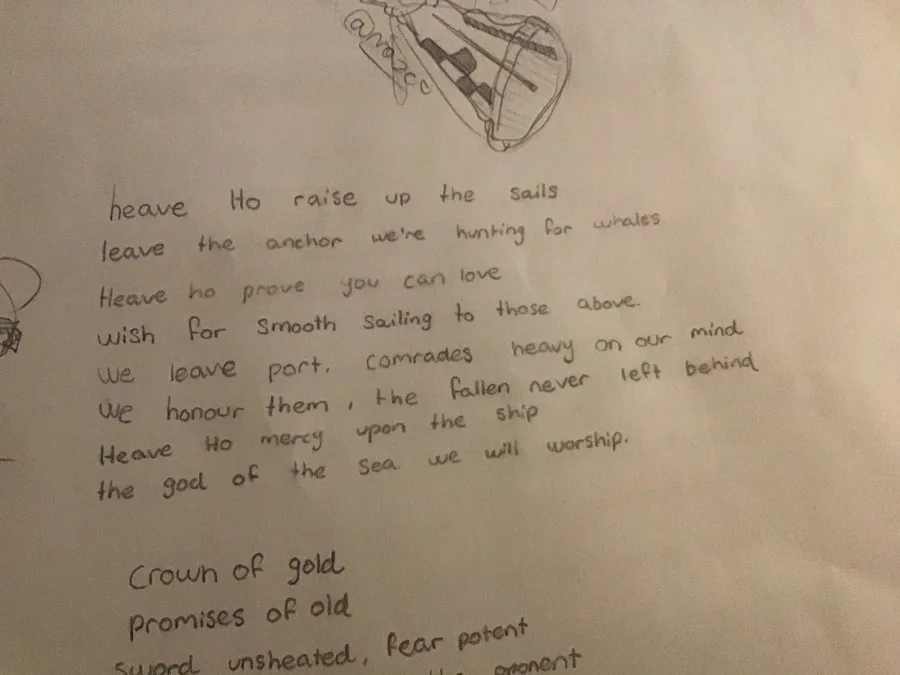 heave Ho raise up the sails
leave the anchor we're hunting for whales
Heave ho prove you can love
wish for smooth sailing to those above.
We leave port, comrades heavy on our mind
We honour them, the fallen never left behind
Heave Ho mercy upon the ship
the god of the sea we will worship.
Crown of gold
promises of old
sword unsheated, fear potent
oponent